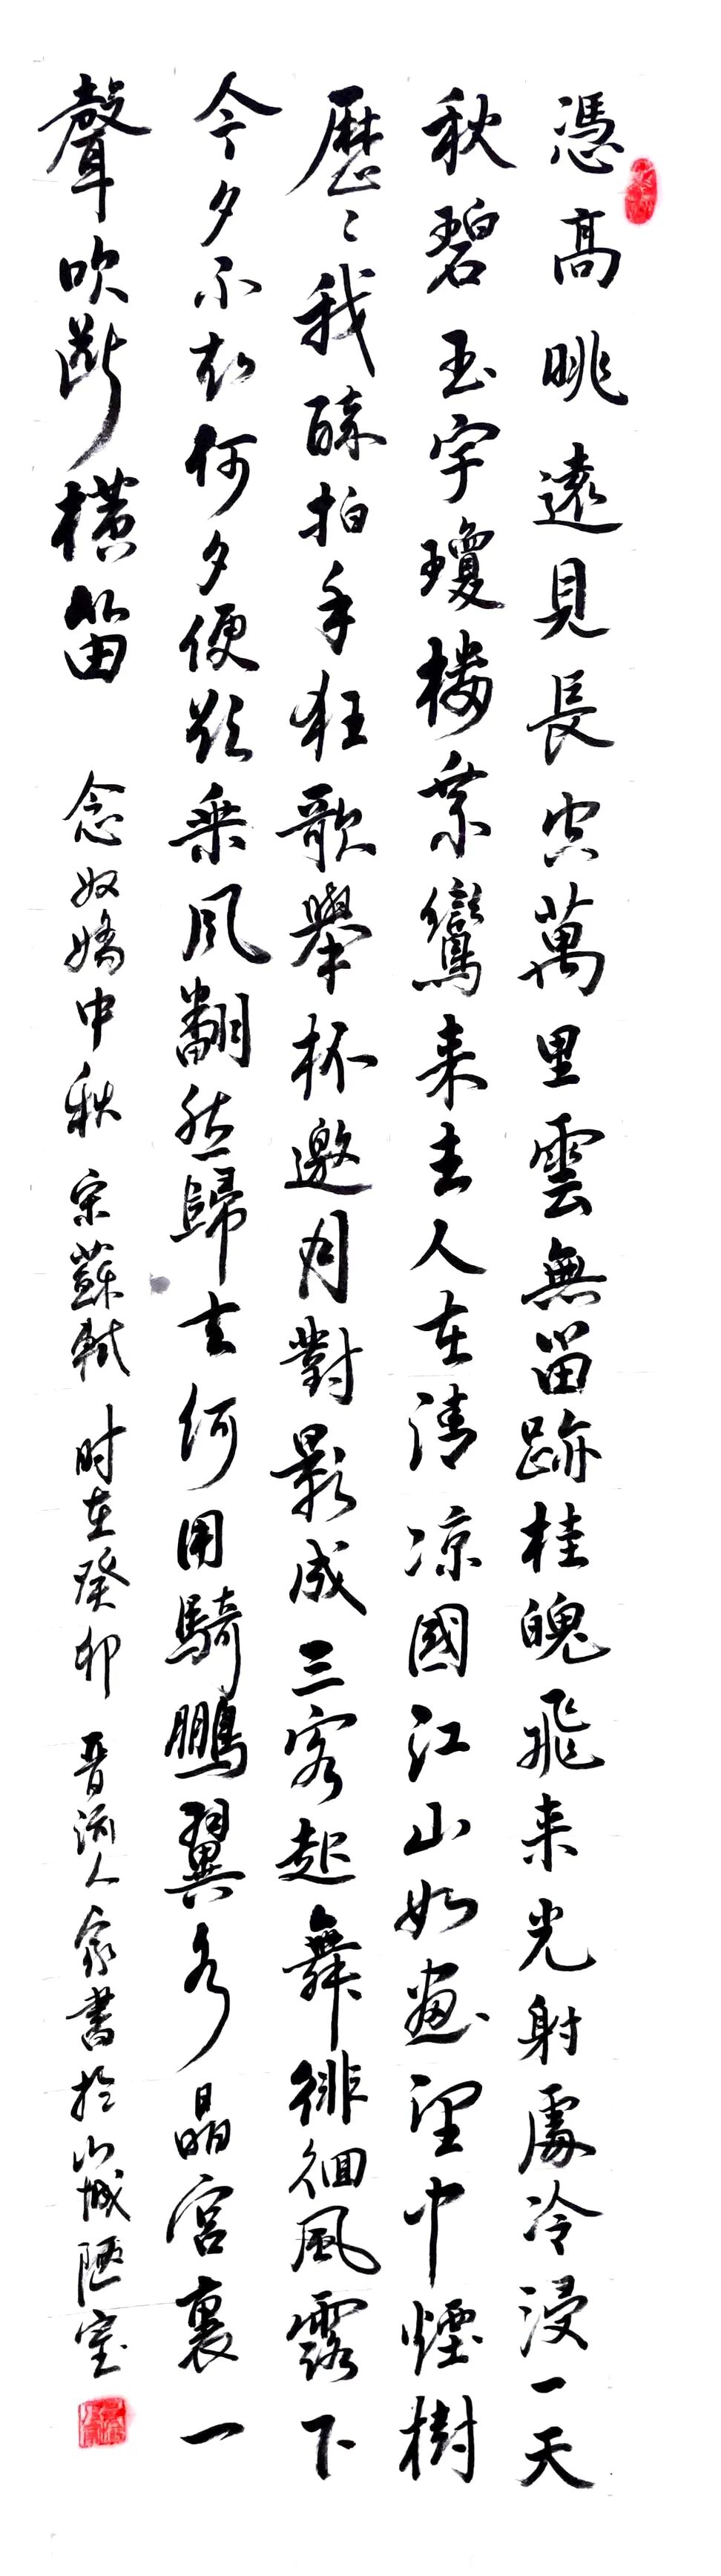 憑高眺遠見長空萬里雲無留跡桂魄飛来光射處冷浸一天
秋碧玉宇瓊樓乘鸞来去人在清凉國江山如畫望中煙樹
歷〻我醉拍手狂歌舉杯邀月對影成三客起舞徘徊風露下
今夕不知何夕便欲乘风翻然歸去何用騎鵬翼水晶宮裏一
聲吹斷橫笛 念奴嬌中秋 宋蘇軾 时在癸卯 晋河人家書於山城陋室